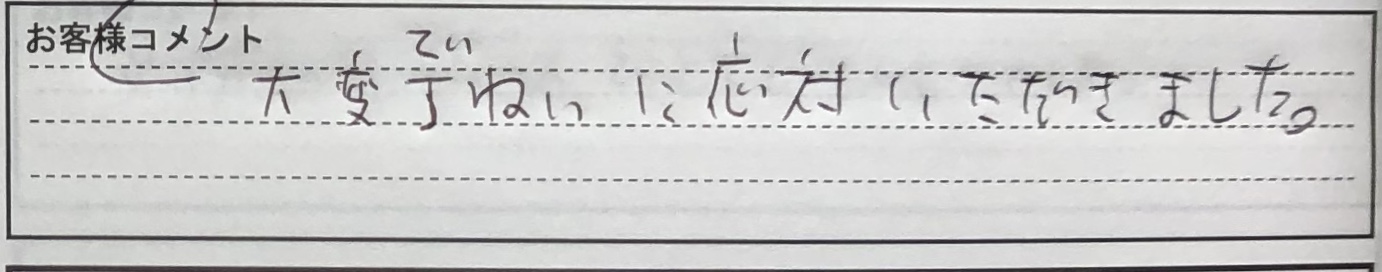 お客様コメント
てい
大変丁ねいに応対いただきました。